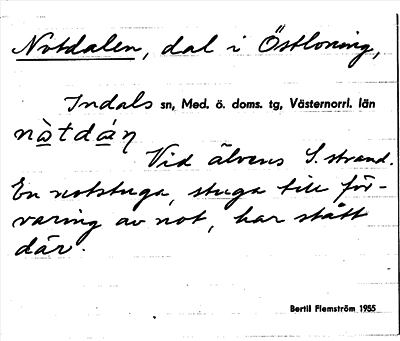 Notdalen, dal i Östloning,
Indals sn, Med. ö. doms. tg, Västernorrl. län
nàtdáη
Vid älvens S. strand.
En notstuga, stuga till för-
varing av not, har stått
där.
Bertil Flemström 1955